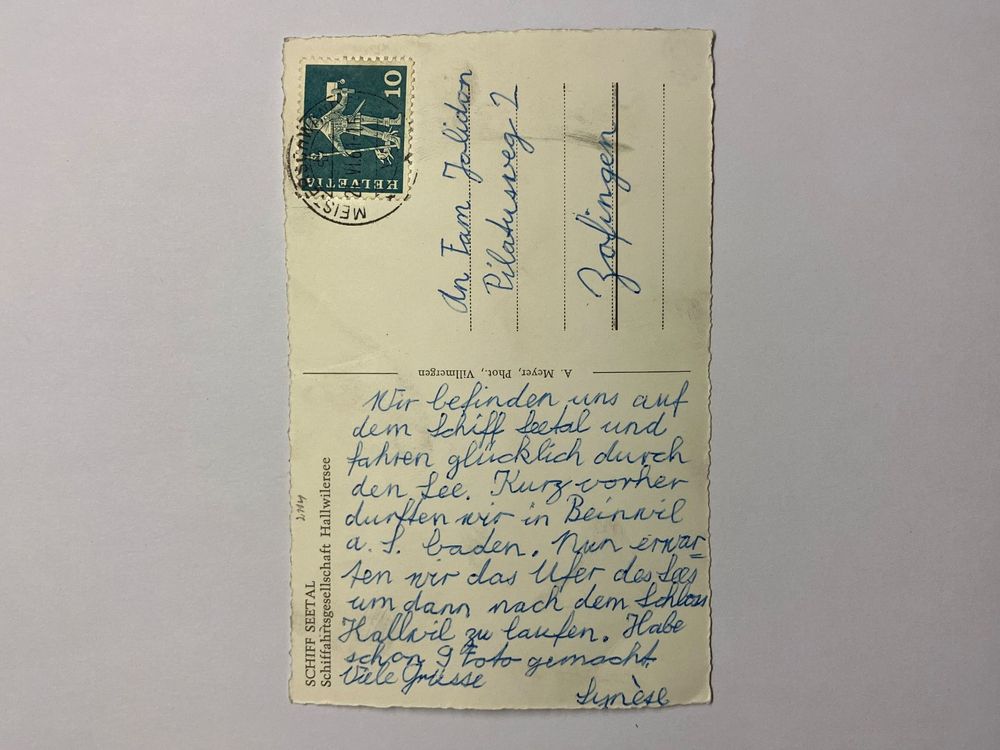 SCHIFF SEETAL
Schiffahrtsgesellschaft Hallwilersee
Wir befinden uns auf
dem Schiff Seetal und
fahren glücklich durch
den See. Kurz vorher
durften wir in Beinwil
a. S. baden. Nun erwar=
ten wir das Ufer des Sees
um dann nach dem Schloss
Hallwil zu laufen. Habe
schon 9 Foto gemacht.
Viele Grüsse
A. Meyer, Phot., Villmergen
HELVETIA
10
An Fam Jolidon
Pilatusweg 2
Zofingen